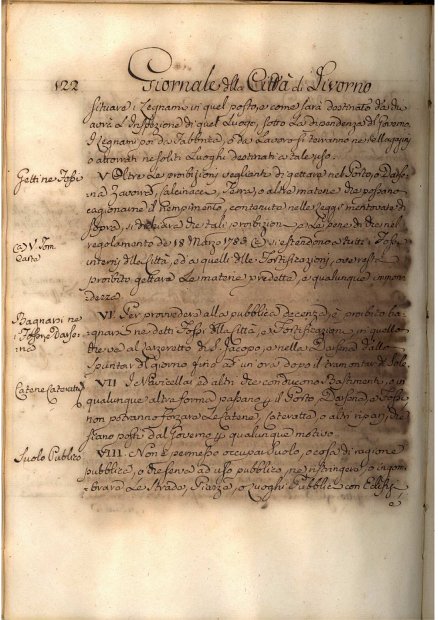 122 Giornale della Città di Livorno
situare i Legnami in quel posto, e come sarà destinato da chi
avrà l'Ispezione di quel Luogo, sotto la dipendenza del Governo.
I Legnami poi da Fabbrica, o da Lavoro si terranno ne' Magazzini
o altrove ne soliti Luoghi destinati a tale uso.
Getti ne Fossi
V. Oltre le proibizioni veglianti di gettare nel Porto, o Darse-
na Zavorra, calcinacci, Terra, o altre materie che possano
cagionarne il riempimento, contenute nelle Leggi mentovate di
sopra, si dichiara che tali proibizioni, e le pene di che nel
regolamento de 18 Marzo
(a) V. Tom
si estendono a tutti i Fossi
interni della Città, ed a quelli delle Fortificazioni, ove resta
proibito gettare le materie predette, e qualunque immon-
dezza.
Bagnarsi ne
i Fossi, e Darse-
na
VI. Per provvedere alla pubblica decenza, è proibito ba-
gnarsi ne detti Fossi della Città, e Fortificazioni, in quello
che va al Lazzeretto di S. Jacopo, e nella Darsena dallo
spuntar del giorno fino ad un ora dopo il tramontar del Sole.
Catene, Cateratte
VII. I Navicellai ed altri che conducono Bastimenti, o in
qualunque altra forma passano per il Porto, Darsena, e Fossi
non potranno forzare le Catene, Cateratte, o altri ripari, che
stano posti dal Governo per qualunque motivo.
Suolo Pubblico
VIII. Non è permesso occupar suolo, o cosa di ragione
pubblica, o che serva ad uso pubblico, nè ristringere, o ingom-
brare le Strade, Piazze, o Luoghi Pubblici con Edifizj